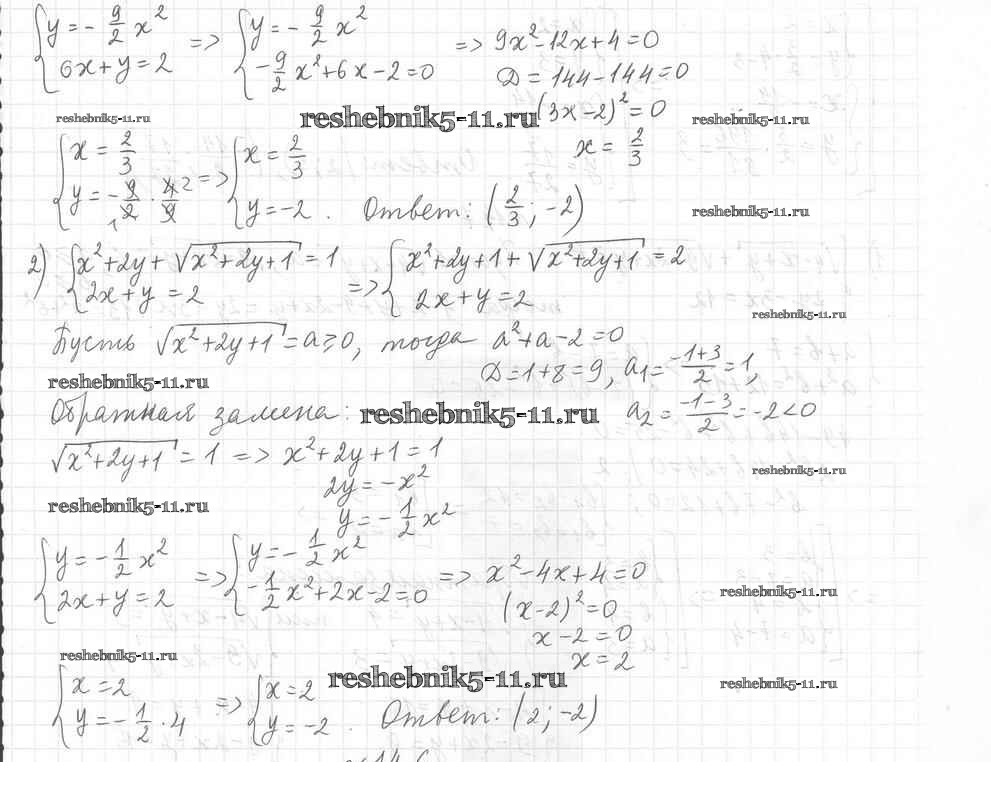 { y = -9/2 x² ; 6x + y = 2 => { y = -9/2 x² ; -9/2 x² + 6x - 2 = 0 => 9x² - 12x + 4 = 0
D = 144 - 144 = 0
reshebnik5-11.ru reshebnik5-11.ru (3x - 2)² = 0 reshebnik5-11.ru
x = 2/3
{ x = 2/3 ; y = -9/2 · 4/9 => { x = 2/3 ; y = -2 . Ответ: (2/3 ; -2)
reshebnik5-11.ru
2) { x² + 2y + √(x² + 2y + 1) = 1 ; 2x + y = 2 => { x² + 2y + 1 + √(x² + 2y + 1) = 2 ; 2x + y = 2
reshebnik5-11.ru
Пусть √(x² + 2y + 1) = a ≥ 0, тогда a² + a - 2 = 0
reshebnik5-11.ru D = 1 + 8 = 9, a₁ = (-1+3)/2 = 1,
Обратная замена: reshebnik5-11.ru a₂ = (-1-3)/2 = -2 < 0
√(x² + 2y + 1) = 1 => x² + 2y + 1 = 1
reshebnik5-11.ru
2y = -x²
reshebnik5-11.ru
y = -1/2 x²
{ y = -1/2 x² ; 2x + y = 2 => { y = -1/2 x² ; -1/2 x² + 2x - 2 = 0 => x² - 4x + 4 = 0
reshebnik5-11.ru
(x - 2)² = 0
x - 2 = 0
reshebnik5-11.ru
x = 2
reshebnik5-11.ru reshebnik5-11.ru
{ x = 2 ; y = -1/2 · 4 => { x = 2 ; y = -2 . Ответ: (2; -2)